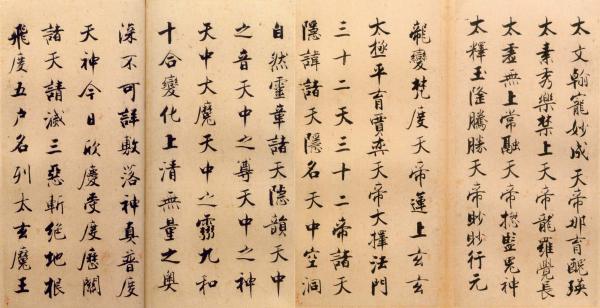 太文翰寵妙成天帝那育醜瑛
太素秀樂禁上天帝龍羅覺長
太虛無上常融天帝摠監鬼神
太釋玉隆騰勝天帝眇眇行元
龍變梵度天帝運上玄玄
太極平育賈奕天帝大擇法門
三十二天三十二帝諸天
隱諱諸天隱名天中空洞
自然靈章諸天隱韻天中
之音天中之尊天中之神
天中大魔天中之靈九和
十合變化上清無量之奧
深不可詳敷落神真普度
天神今日欣慶受度歷關
諸天請滅三惡斬絕地根
飛度五戶名列太玄魔王